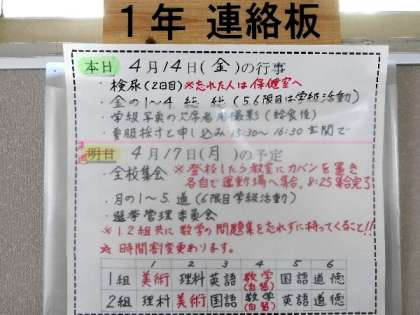 1年 連絡板
本日 4月14日(金)の行事
・検尿(2日目)※忘れた人は保健室へ
・金の1〜4 総 総 (5 6限目は学級活動)
・学級写真の欠席者 撮影(給食後)
申し込み 15:30〜16:30 玄関で
明日 4月17日(月)の予定
・全校集会 ※登校したら教室にカバンを置き
各自で運動場へ集合、8:25集合完了
・月の1〜5、道(6限目学級活動)
・選挙管理委員会
※1.2組共に数学の問題集を忘れずに持ってくること!!
※時間割変更あります。
1 2 3 4 5 6
1組 美術 理科 英語 数学(自習) 国語 道徳
2組 理科 美術 国語 数学(自習) 英語 道徳